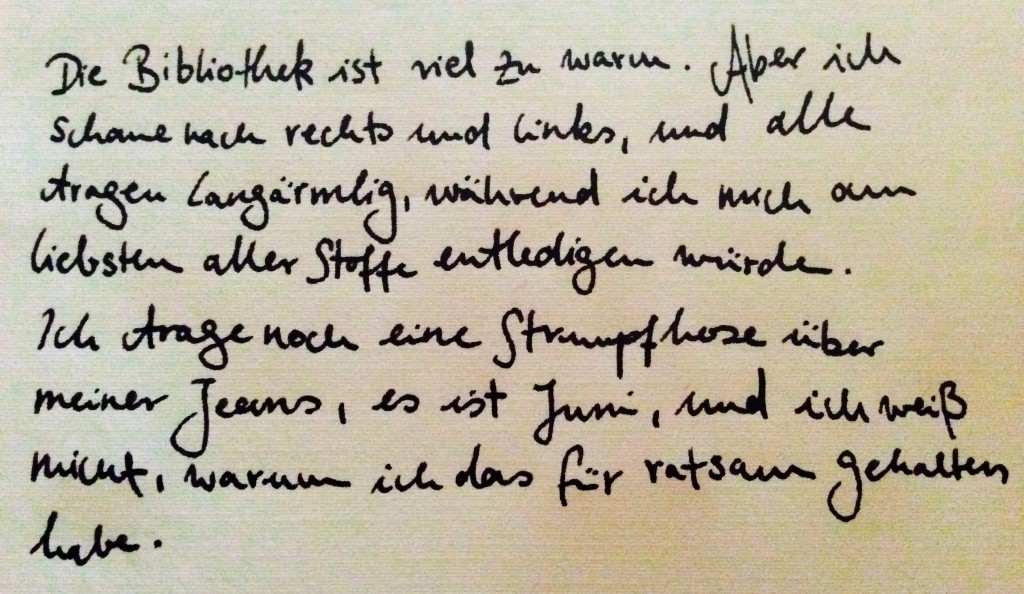 Die Bibliothek ist viel zu warm. Aber ich
schaue nach rechts und links, und alle
tragen langärmlig, während ich mich am
liebsten aller Stoffe entledigen würde.
Ich trage noch eine Strumpfhose über
meiner Jeans, es ist Juni, und ich weiß
nicht, warum ich das für ratsam gehalten
habe.